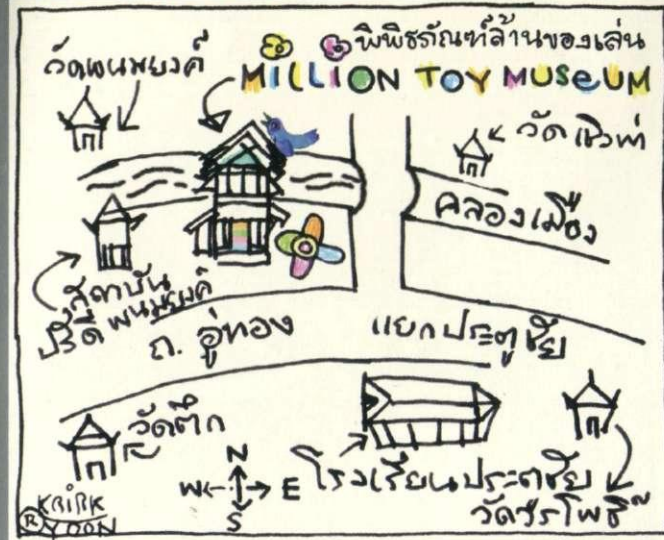 พิพิธภัณฑ์ล้านของเล่น
MILLION TOY MUSEUM
วัดพนมยงค์
วัดเชิงท่า
คลองเมือง
สถาบัน
ปรีดี พนมยงค์
ถ. อู่ทอง
แยกประตูชัย
วัดตึก
N
W
E
S
โรงเรียนประตูชัย
วัดวรโพธิ์
KRIRK
YOON
R